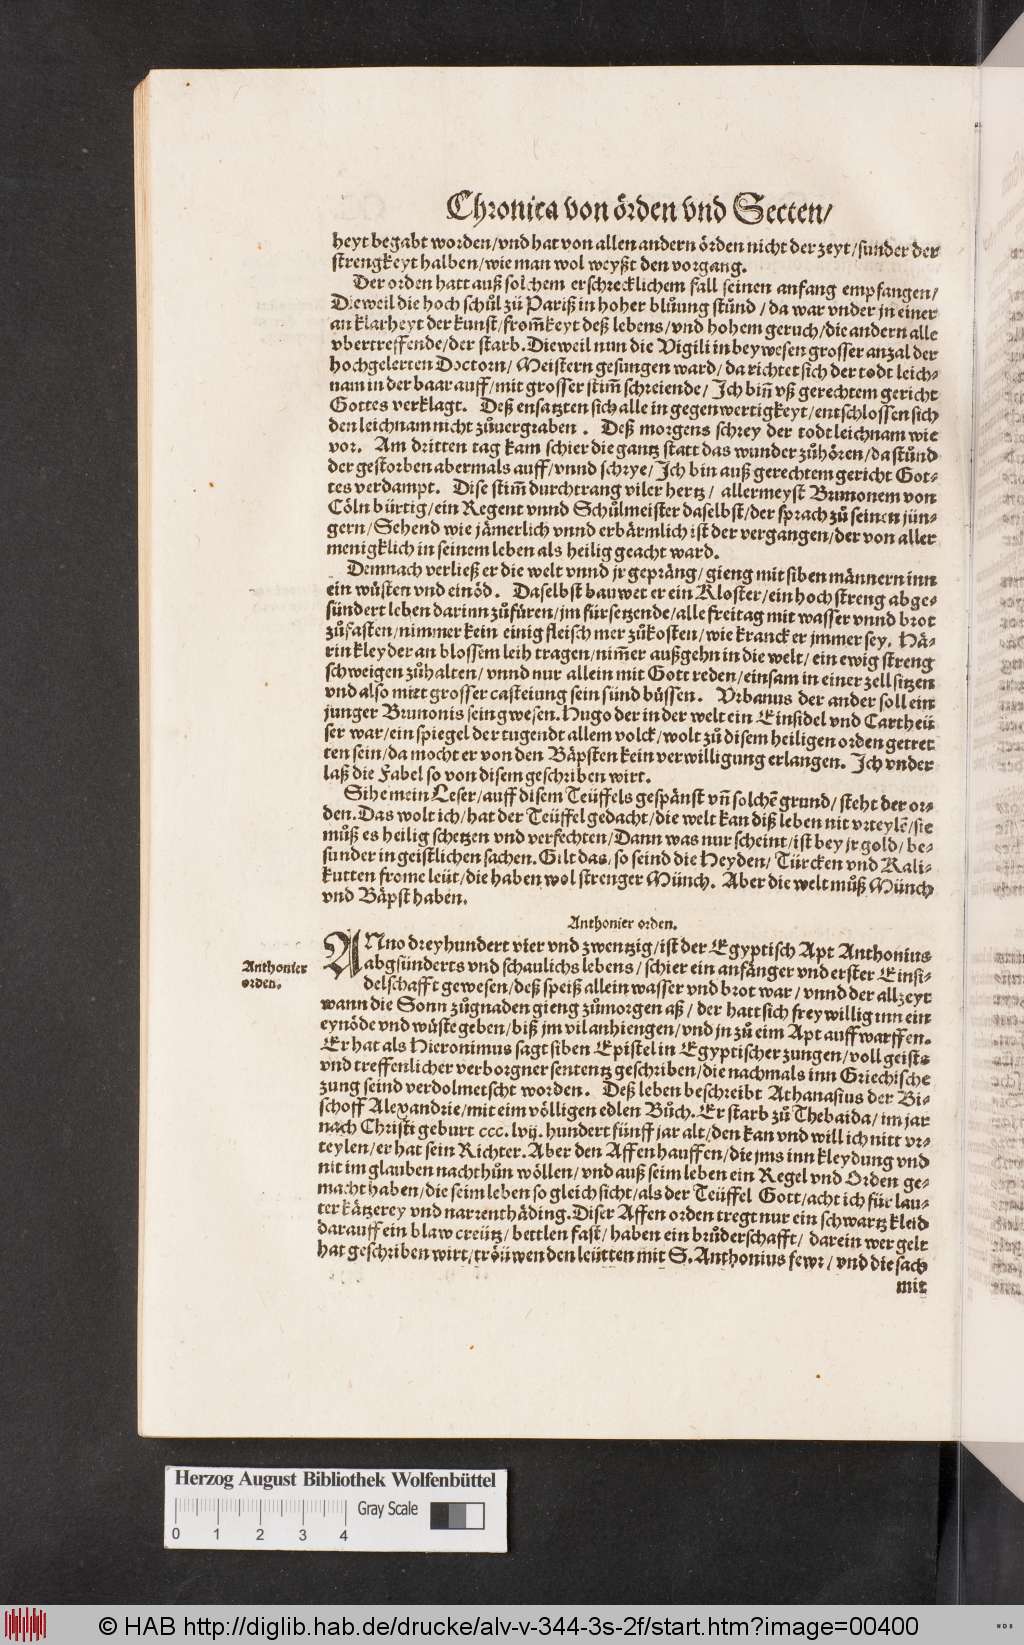 Chronica von örden vnd Secten/
heyt begabt worden/vnd hat von allen andern örden nicht der zeyt/sunder der
strengkeyt halben/wie man wol weyßt den vorgang.
Der orden hatt auß solchem erschrecklichem fall seinen anfang empfangen/
Dieweil die hoch schůl zů Pariß in hoher blůung stůnd/da war vnder jn einer
an klarheyt der kunst/from̃keyt deß lebens/vnd hohem geruch/die andern alle
vbertreffende/der starb. Dieweil nun die Vigili in beywesen grosser anzal der
hochgelerten Doctorn/Meistern gesungen ward/da richtet sich der todt leich-
nam in der baar auff/mit grosser stim̃ schreiende/Ich bin̄ vß gerechtem gericht
Gottes verklagt. Deß ensatzten sich alle in gegenwertigkeyt/entschlossen sich
den leichnam nicht zůuergraben. Deß morgens schrey der todt leichnam wie
vor. Am dritten tag kam schier die gantz statt das wunder zůhören/da stůnd
der gestorben abermals auff/vnnd schrye/Ich bin auß gerechtem gericht Got-
tes verdampt. Dise stim̃ durchtrang viler hertz/allermeyst Brunonem von
Cöln bürtig/ein Regent vnnd Schůlmeister daselbst/der sprach zů seinen jün-
gern/Sehend wie jämerlich vnnd erbärmlich ist der vergangen/der von aller
menigklich in seinem leben als heilig geacht ward.
Demnach verließ er die welt vnnd jr gepräng/gieng mit siben männern inn
ein wüsten vnd einöd. Daselbst bauwet er ein Kloster/ein hoch streng abge-
sündert leben darinn zůfüren/jm fürsetzende/alle freitag mit wasser vnnd brot
zůfasten/nimmer kein einig fleisch mer zůkosten/wie kranck er jmmer sey. Hä-
rin kleyder an blossem leib tragen/nim̃er außgehn in die welt/ein ewig streng
schweigen zůhalten/vnnd nur allein mit Gott reden/einsam in einer zell sitzen
vnd also mitt grosser casteiung sein sünd büssen. Vrbanus der ander soll ein
junger Brunonis sein gwesen. Hugo der in der welt ein Einsidel vnd Cartheü
ser war/ein spiegel der tugendt allem volck/wolt zů disem heiligen orden getret
ten sein/da mocht er von den Bäpsten kein verwilligung erlangen. Ich vnder
laß die Fabel so von disem geschriben wirt.
Sihe mein Leser/auff disem Teüffels gespänst vn̄ solchē grund/steht der or-
den. Das wolt ich/hat der Teüffel gedacht/die welt kan diß leben nit vrteylē/sie
můß es heilig schetzen vnd verfechten/Dann was nur scheint/ist bey jr gold/be-
sunder in geistlichen sachen. Gilt das/so seind die Heyden/Türcken vnd Kali-
kutten frome leüt/die haben wol strenger Münch. Aber die welt můß Münch
vnd Bäpst haben.
Anthonier orden.
Anthonier
orden.
ANno dreyhundert vier vnd zwentzig/ist der Egyptisch Apt Anthonius
abgsünderts vnd schaulichs lebens/schier ein anfänger vnd erster Einsi-
delschafft gewesen/deß speiß allein wasser vnd brot war/vnnd der allzeyt
wann die Sonn zůgnaden gieng zůmorgen aß/der hatt sich freywillig inn ein
eynöde vnd wüste geben/biß jm vil anhiengen/vnd jn zů eim Apt auffwarffen.
Er hat als Hieronimus sagt siben Epistel in Egyptischer zungen/voll geists
vnd treffenlicher verborgner sententz geschriben/die nachmals inn Griechische
zung seind verdolmetscht worden. Deß leben beschreibt Athanasius der Bi-
schoff Alexandrie/mit eim völligen edlen Bůch. Er starb zů Thebaida/im jar
nach Christi geburt ccc. lvij. hundert fünff jar alt/den kan vnd will ich nitt vr-
teylen/er hat sein Richter. Aber den Affenhauffen/die jms inn kleydung vnd
nit im glauben nachthůn wöllen/vnd auß seim leben ein Regel vnd Orden ge-
macht haben/die seim leben so gleich sicht/als der Teüffel Gott/acht ich für lau-
ter kätzerey vnd narrenthäding. Diser Affen orden tregt nur ein schwartz kleid
darauff ein blaw creütz/bettlen fast/haben ein brůderschafft/darein wer gelt
hat geschriben wirt/tröüwen den leütten mit S. Anthonius fewr/vnd die sach
mit
Herzog August Bibliothek Wolfenbüttel
Gray Scale
0 1 2 3 4
© HAB http://diglib.hab.de/drucke/alv-v-344-3s-2f/start.htm?image=00400